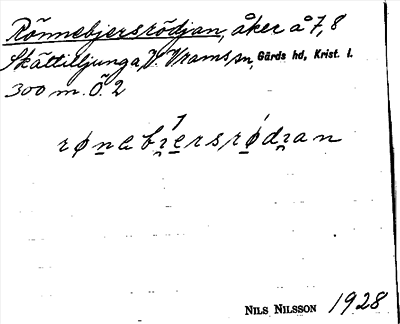 Rönnebjersrödjan, åker å 7, 8
Skättilljunga, V. Vrams sn, Gärds hd, Krist. l.
300 m. Ö. 2
rønabi̯ersrødi̯an
NILS NILSSON 1928